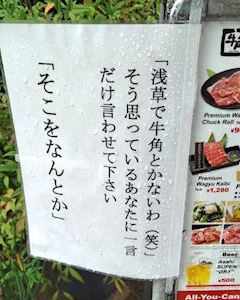 「浅草で牛角とかないわ（笑）」
そう思っているあなたに一言
だけ言わせて下さい
「そこをなんとか」
Premium Wa
Chuck Roll
Premium
Wagyu Kalbi
¥1,280
Beer
Asahi
SUPER
"DRY"
¥500
All-You-Can